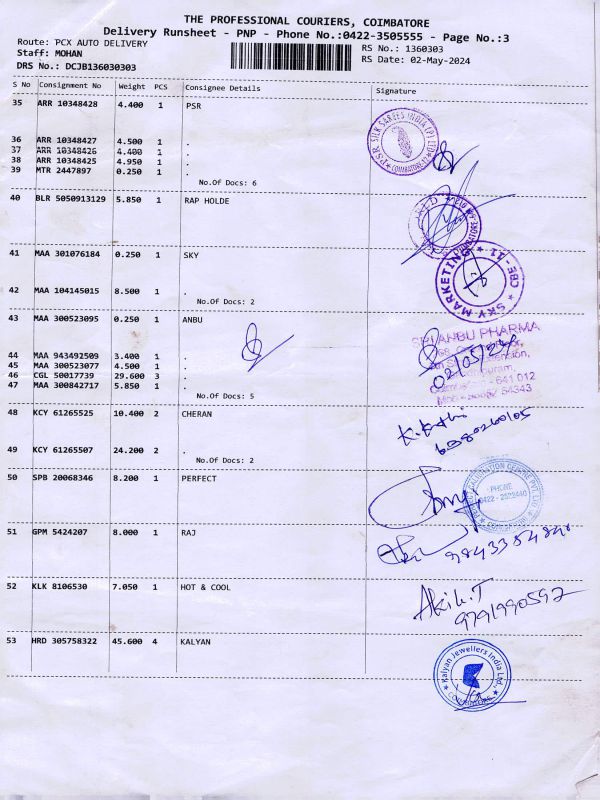 THE PROFESSIONAL COURIERS, COIMBATORE
Delivery Runsheet - PNP - Phone No.:0422-3505555 - Page No.:3
Route: PCX AUTO DELIVERY
RS No.: 1360303
Staff: MOHAN
RS Date: 02-May-2024
DRS No.: DCJB136030303
S No Consignment No Weight PCS Consignee Details Signature
35 ARR 10348428 4.400 1 PSR
36 ARR 10348427 4.500 1 .
37 ARR 10348426 4.400 1 .
38 ARR 10348425 4.950 1 .
39 MTR 2447897 0.250 1 .
No.Of Docs: 6
40 BLR 5050913129 5.850 1 RAP HOLDE
41 MAA 301076184 0.250 1 SKY
SKY MARKETING
CBE-11
42 MAA 104145015 8.500 1 .
No.Of Docs: 2
43 MAA 300523095 0.250 1 ANBU
SRI ANBU PHARMA
44 MAA 943492509 3.400 1 .
45 MAA 300523077 4.500 1 .
46 CGL 50017739 29.600 3 .
47 MAA 300842717 5.850 1 .
No.Of Docs: 5
48 KCY 61265525 10.400 2 CHERAN
49 KCY 61265507 24.200 2 .
No.Of Docs: 2
50 SPB 20068346 8.200 1 PERFECT
PHONE
51 GPM 5424207 8.000 1 RAJ
52 KLK 8106530 7.050 1 HOT & COOL
Akil.T
9791990597
53 HRD 305758322 45.600 4 KALYAN
Kalyan Jewellers India Ltd